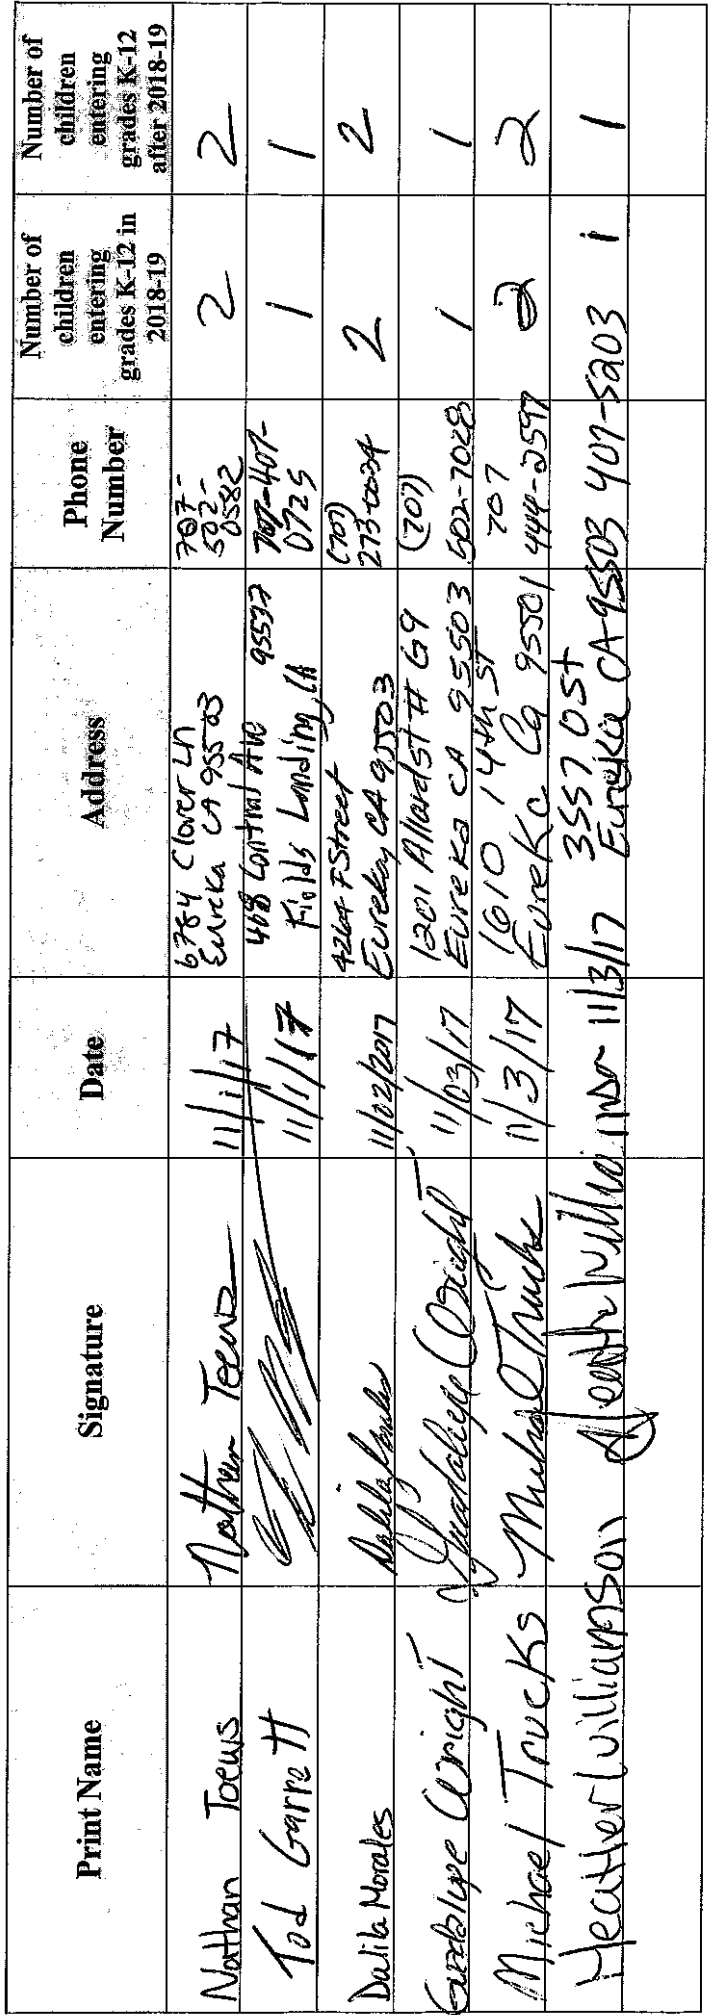 Print Name
Signature
Date
Address
Phone
Number
Number of
children
entering
grades K-12 in
2018-19
Number of
children
entering
grades K-12
after 2018-19
Natthan Toews
Nathan Toews
11/1/17
6784 Clover Ln
Eureka CA 95503
707-
502-
0582
2
2
Tod Garrett
11/1/17
468 Central Ave 95537
Fields Landing, CA
707-407-
0725
1
1
Dalila Morales
Dalila Morales
11/02/2017
4264 F Street
Eureka, CA 95503
(707)
273-
2
2
Guadalupe Wright
Guadalupe Wright
11/03/17
1201 Allard St # G9
Eureka CA 95503
(707)
502-7028
1
1
Michael Trucks
Michael Trucks
11/3/17
1610 14th St
Eureka Ca 95501
707
444-2597
2
2
Heather Williamson
Heather Williamson
11/3/17
3557 O St
Eureka CA 95503
407-5203
1
1